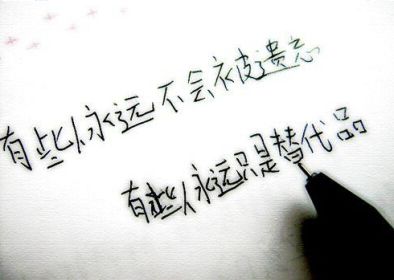 有些人永远不会被遗忘
有些人永远只是替代品